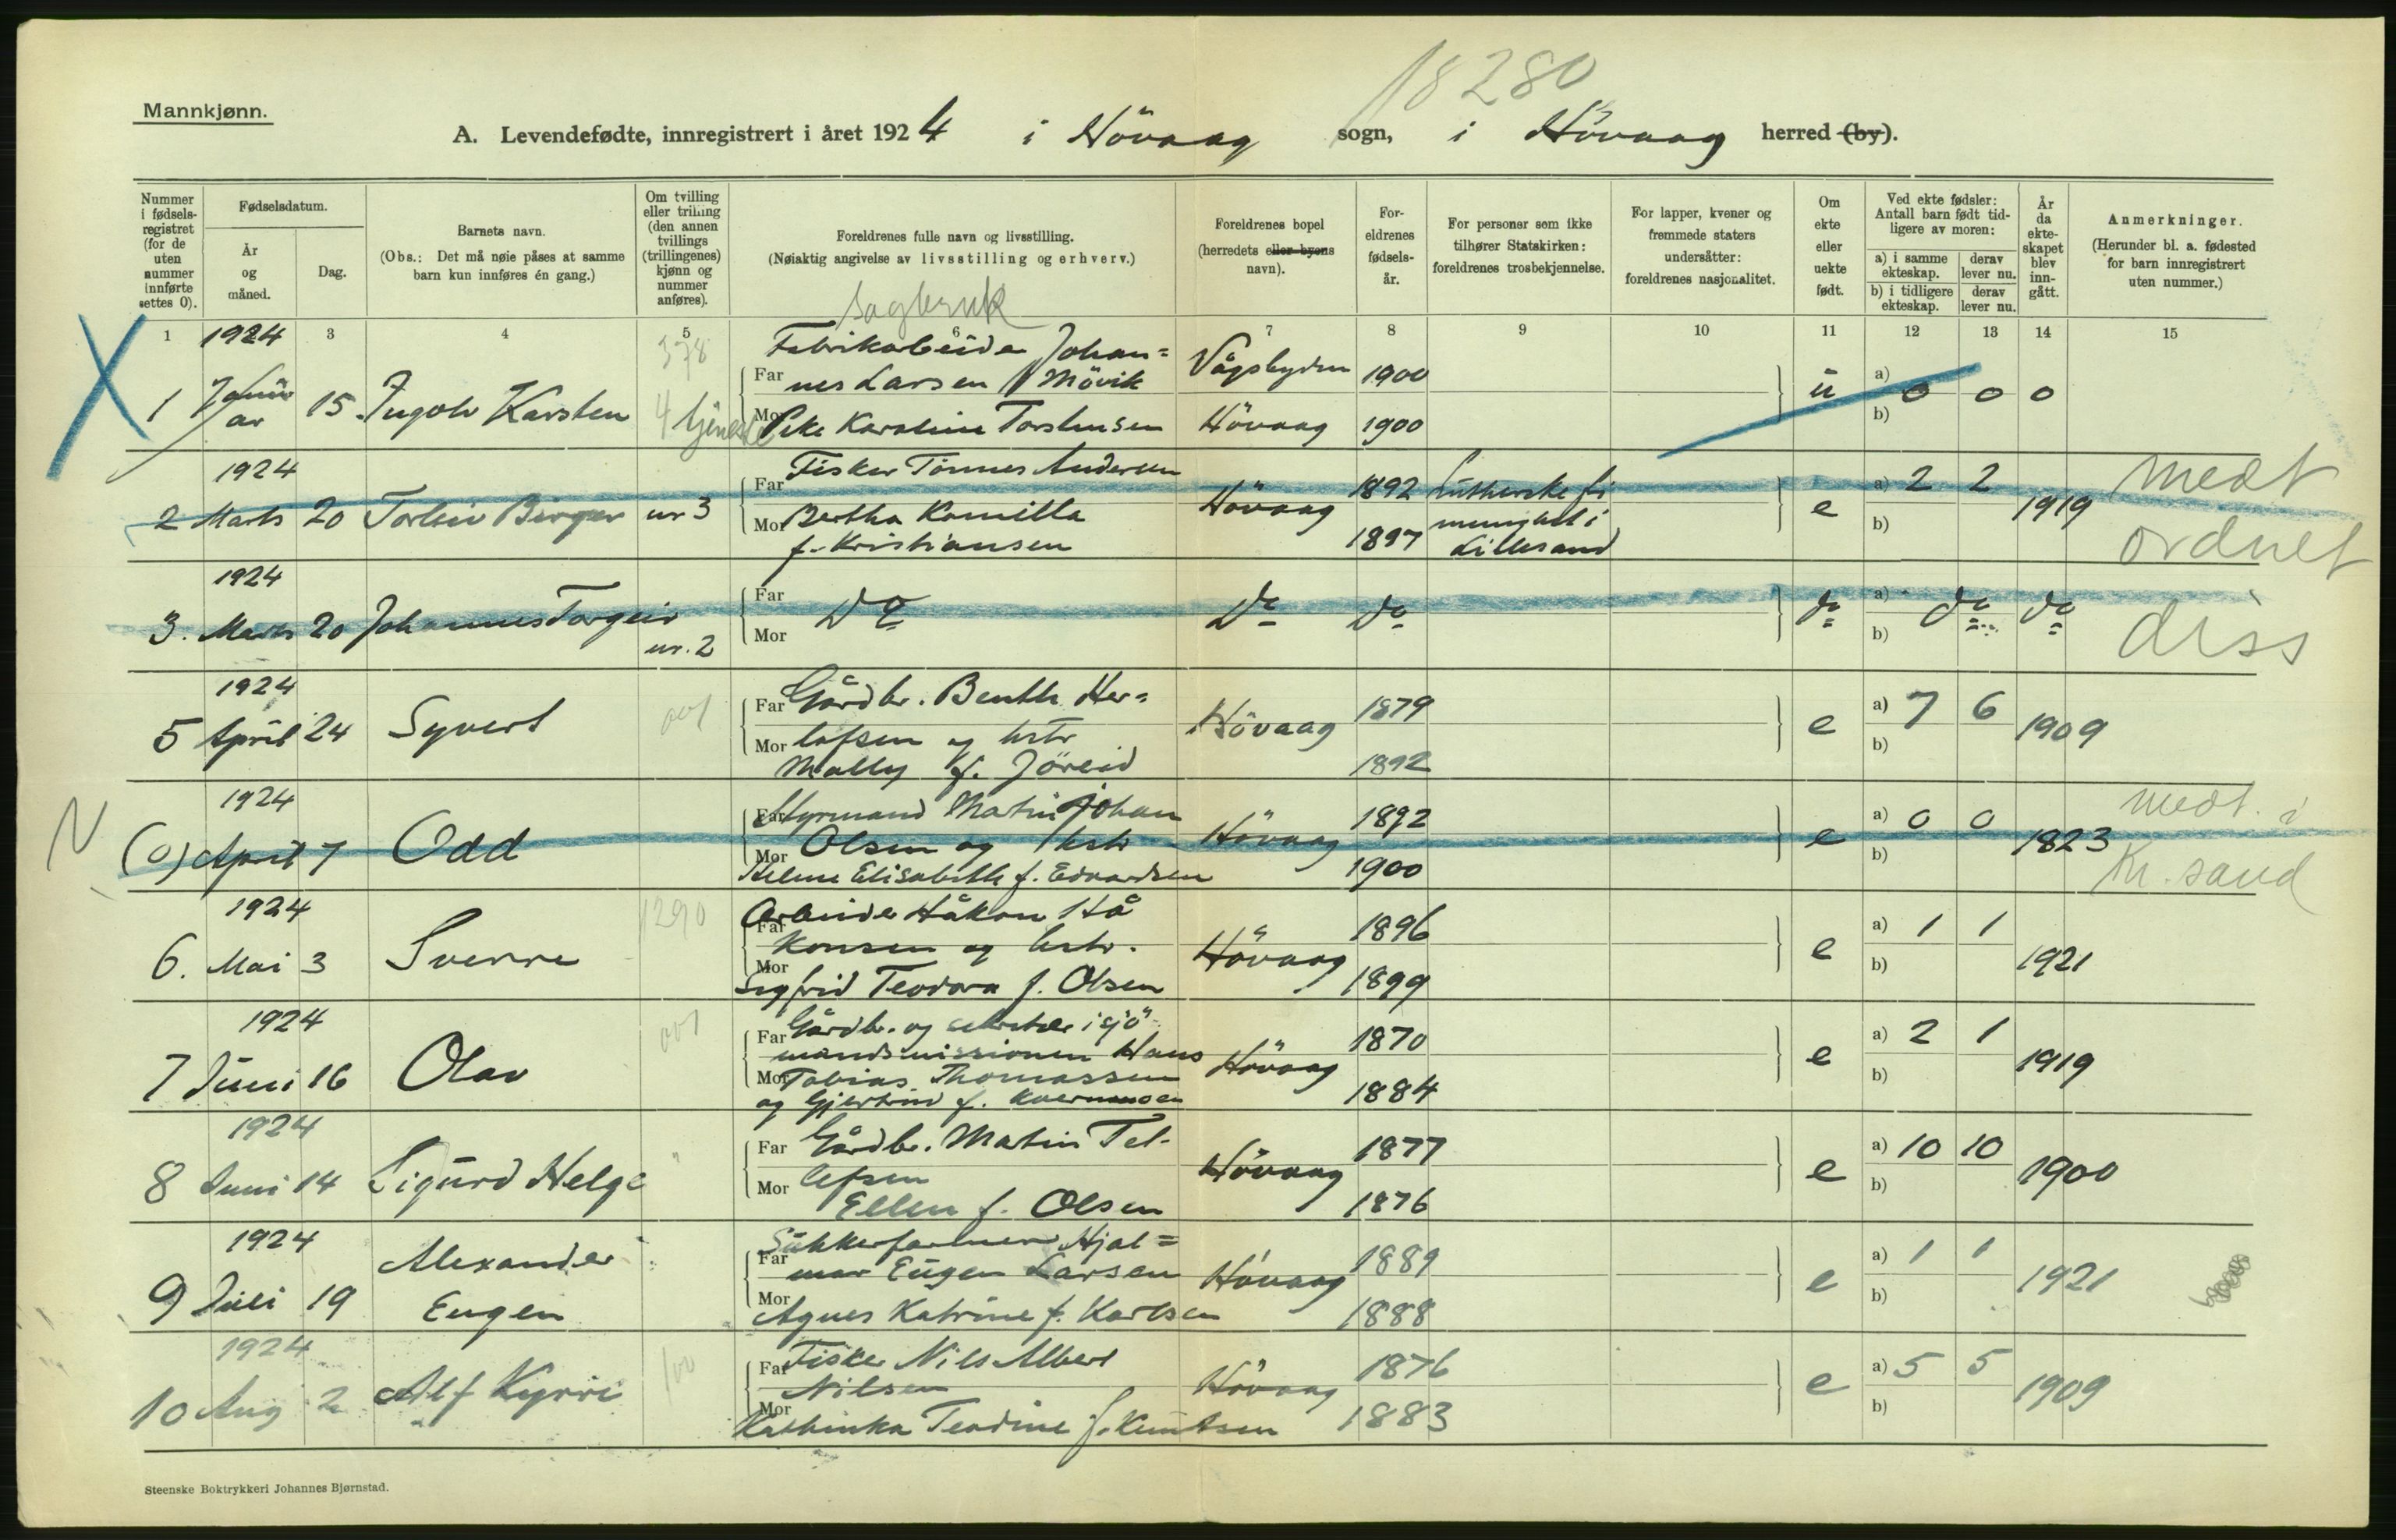 18280
Mannkjønn.
A. Levendefødte, innregistrert i året 1924 i Hövaag sogn, i Hövaag herred (by).
Nummer i fødselsregistret (for de uten nummer innførte settes 0).
Fødselsdatum.
År og måned.
Dag.
Barnets navn.
(Obs.: Det må nøie påses at samme barn kun innføres én gang.)
Om tvilling eller trilling (den annen tvillings (trillingenes) kjønn og nummer anføres).
Foreldrenes fulle navn og livsstilling.
(Nøiaktig angivelse av livsstilling og erhverv.)
Foreldrenes bopel (herredets eller byens navn).
Foreldrenes fødselsår.
For personer som ikke tilhører Statskirken: foreldrenes trosbekjennelse.
For lapper, kvener og fremmede staters undersåtter: foreldrenes nasjonalitet.
Om ekte eller uekte født.
Ved ekte fødsler: Antall barn født tidligere av moren:
a) i samme ekteskap. derav lever nu.
b) i tidligere ekteskap. derav lever nu.
År da ekteskapet blev inngått.
Anmerkninger.
(Herunder bl. a. fødested for barn innregistrert uten nummer.)
Sagbruk
1 3 4 5 6 7 8 9 10 11 12 13 14 15
1924 378 Fabrikarbeider Johan=
1 Januar 15 Ingolv Karsten Far nes Larsen Mövik Vågsbygden 1900 u a) 0 0 0
b)
4 tjeneste Mor Pike Karoline Torstensen Hövaag 1900
1924 Fisker Tönnes Andersen
2 Marts 20 Torleiv Birger nr 3 Far Hövaag 1892 Lutherske fri e a) 2 2 1919 medt
Mor Bertha Kamilla menighet i b) ordnet
f. Kristiansen 1897 Lillesand
1924
3. Marts 20 Johannes Torgeir nr. 2 Far Do Do Do do a) do do diss
Mor b)
1924
5 April 24 Syvert Far Gårdbr. Benth Her= Hövaag 1879 e a) 7 6 1909
Mor lofsen og hstr b)
Mally f. Jöreid 1892
1924 N
(0) April 7 Odd Far Styrmand Martin Johan Hövaag 1892 e a) 0 0 1823 medt. i
Mor Olsen og hstr b) Kr. sand
Helene Elisabeth f. Edvardsen 1900
1924 1290 Arbeider Håkon Hå
6. Mai 3 Sverre Far konsen og hstr. Hövaag 1896 e a) 1 1 1921
Mor b)
Sigfrid Teodora f. Olsen 1899
1924
7 Juni 16 Olav Far Gårdbr. og sekretær i sjö= Hövaag 1870 e a) 2 1 1919
mandsmissionen Hans
Mor Tobias Thomassen b)
og Gjertrud f. 1884
1924
8 Juni 14 Sigurd Helge Far Gårdbr. Martin Tel- Hövaag 1877 e a) 10 10 1900
Mor lefsen b)
Ellen f. Olsen 1876
1924
9 Juli 19 Alexander Eugen Far Sukkerfarmer Hjal= Hövaag 1889 e a) 1 1 1921
mar Eugen Larsen
Mor Agnes Katrine f. Karlsen 1888 b)
1924
10 Aug 2 Alf Kyrre 100 Far Fisker Nils Albert Hövaag 1876 e a) 5 5 1909
Nilsen
Mor Kathinka Teodine f. Knutsen 1883 b)
Steenske Boktrykkeri Johannes Bjørnstad.